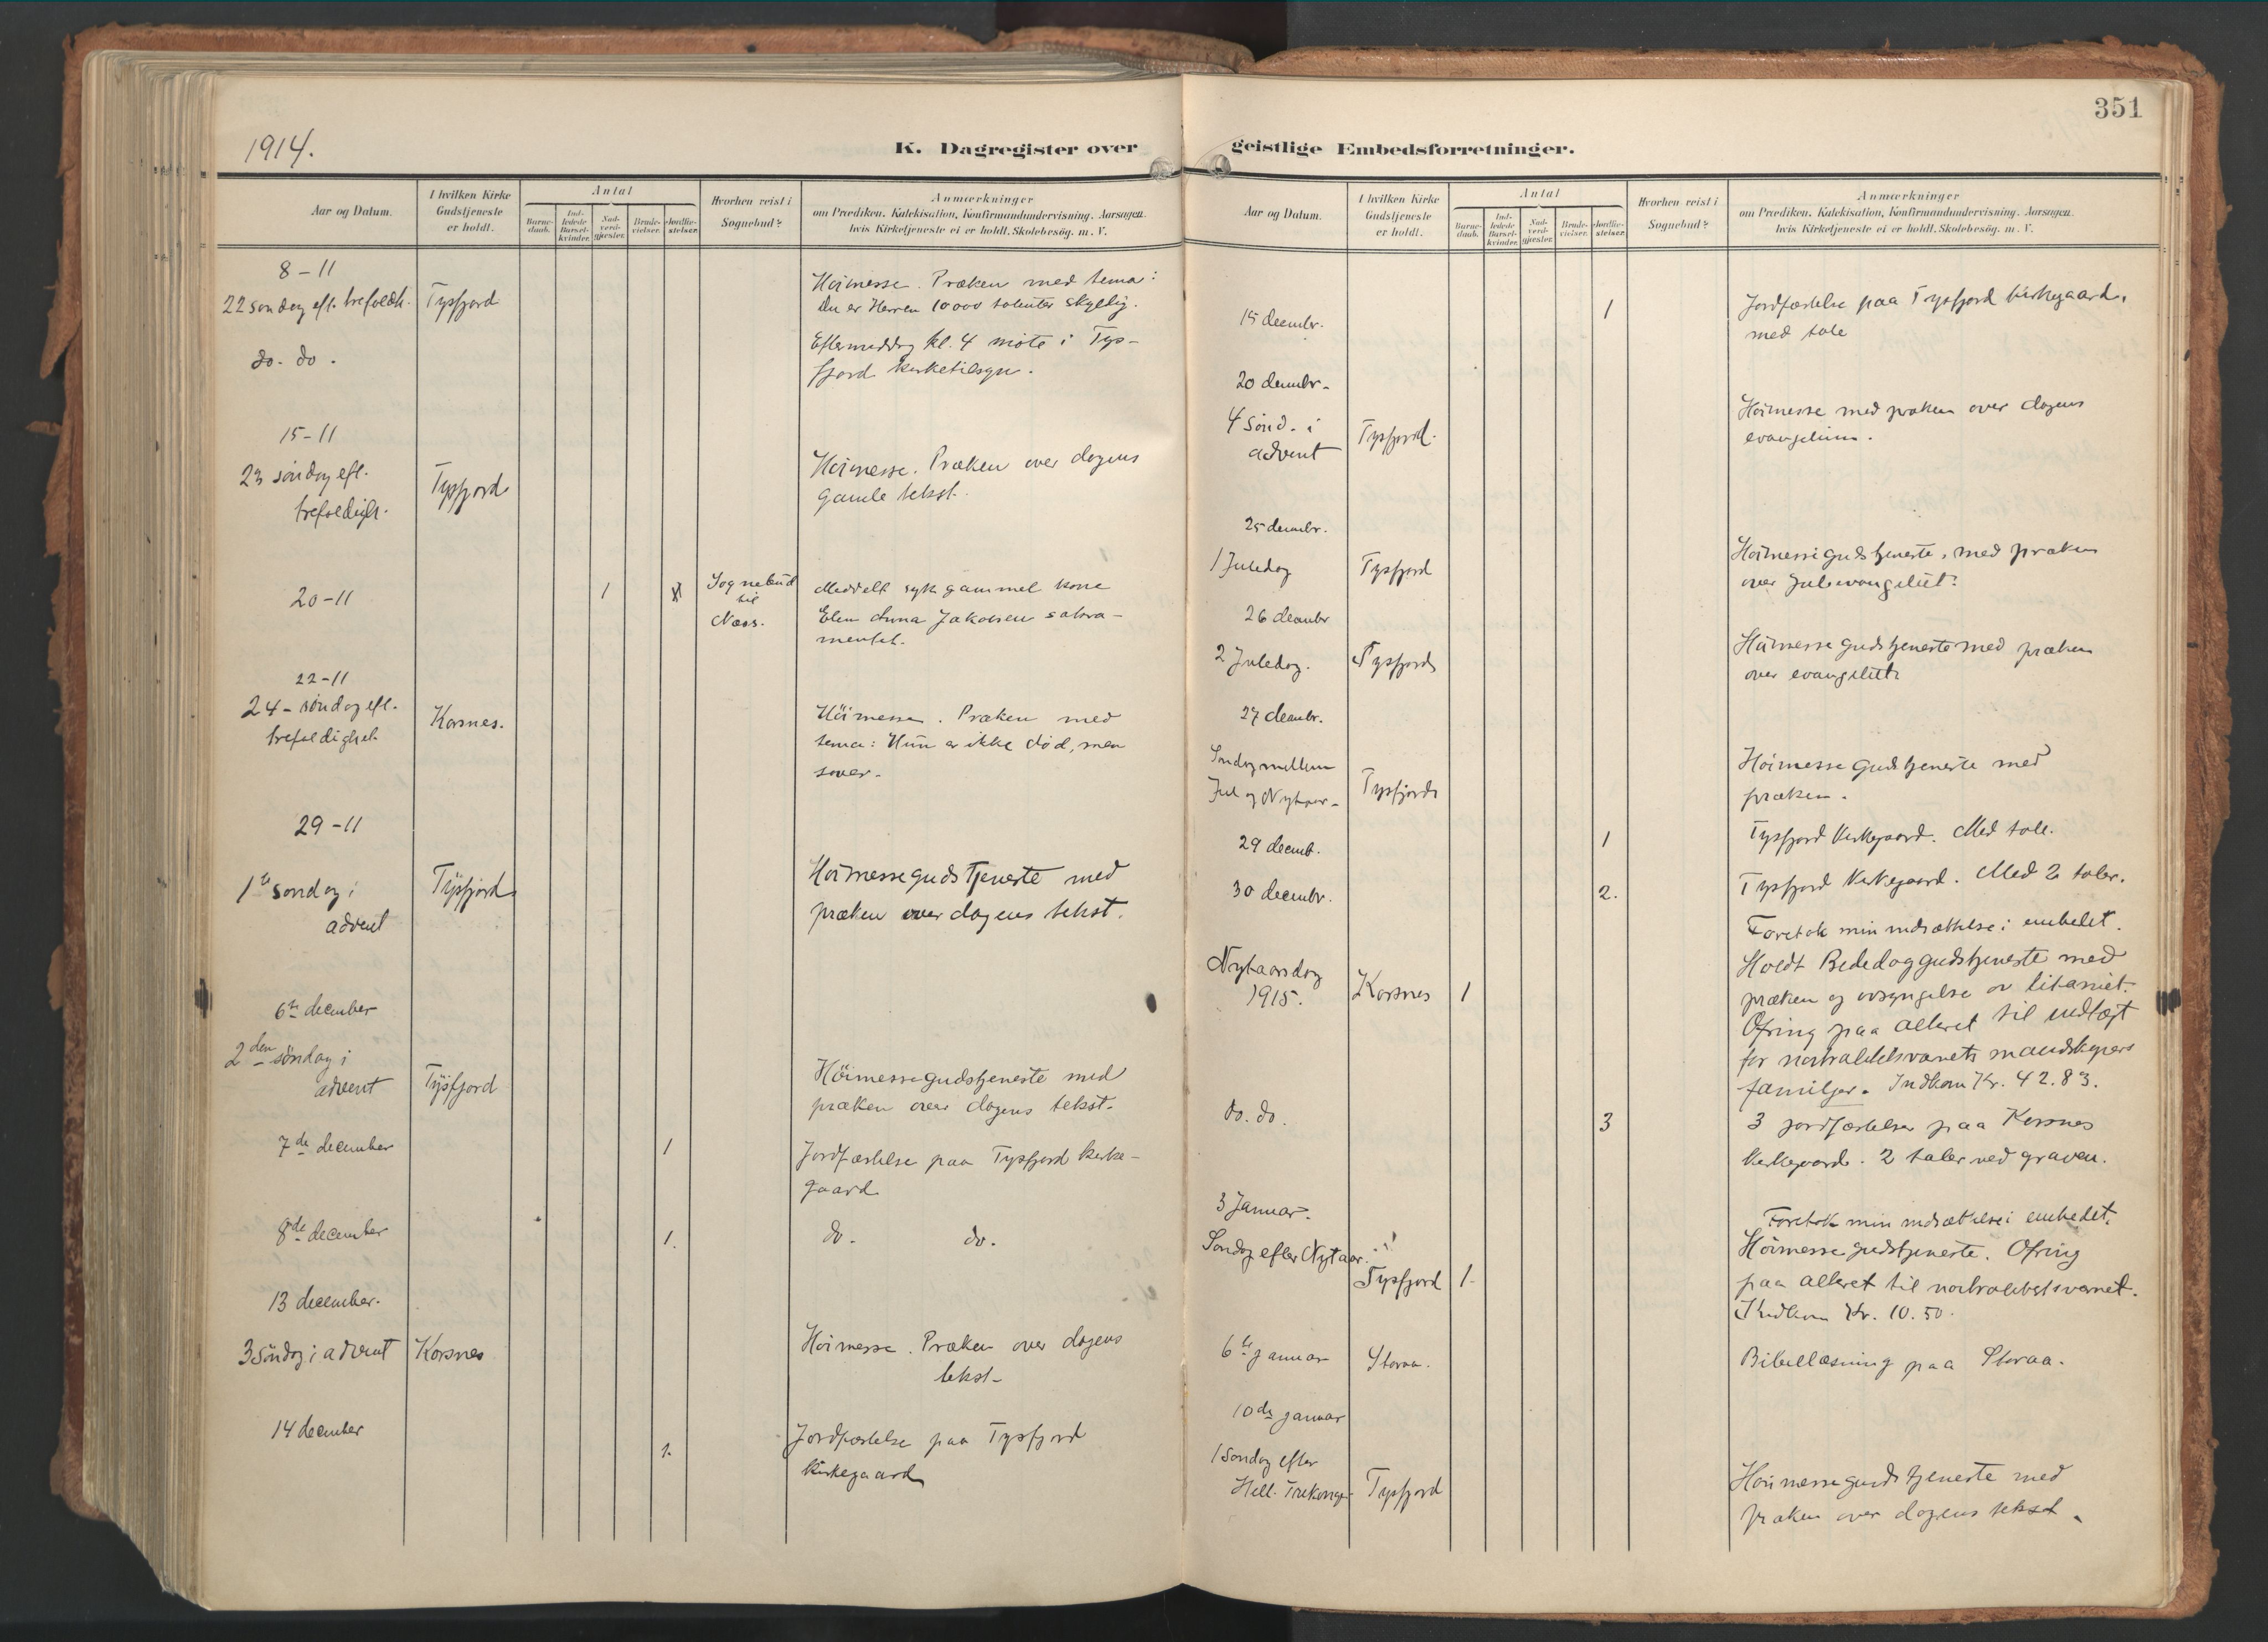 1914.
K. Dagregister over
Aar og Datum.
I hvilken Kirke Gudstjeneste er holdt.
Antal
Barne-daab.
Ind-ledede Barsel-kvinder.
Nad-verd-gjester.
Brude-vielser.
Jordfæ-stelser.
Hvorhen reist i Sognebud?
Anmærkninger
om Prædiken, Katekisation, Konfirmandundervisning, Aarsagen,
hvis Kirketjeneste ei er holdt, Skolebesøg. m. V.
8-11
22 søndag eft. trefoldh. Tysfjord
Høimesse. Præken med tema:
Du er Herren 10000 talenter skyldig.
do. do.
Eftermiddag kl. 4 møte i Tys-
fjord kirketilsyn.
15-11
23 søndag eft.
trefoldigh.
Tysfjord
Høimesse. Præken over dagens
gamle tekst.
20-11
1
Sognebud
til
Næss.
Meddelt syk gammel kone
Elen Anna Jakobsen sakra-
mentet.
22-11
24-søndag eft.
trefoldighet
Korsnes.
Høimesse. Præken med
tema: Hun er ikke død, men
sover.
29-11
1ste søndag i
advent
Tysfjord
Høimessegudstjeneste med
præken over dagens tekst.
6te december
2den søndag i
advent
Tysfjord
Høimessegudstjeneste med
præken over dagens tekst.
7de december
1
Jordfæstelse paa Tysfjord kirke-
gaard
8de december
1.
do. do.
13 december.
3 søndag i advent Korsnes
Høimesse. Præken over dagens
tekst-
14 december
1.
Jordfæstelse paa Tysfjord
Kirkegaard
351
geistlige Embedsforretninger.
Aar og Datum.
I hvilken Kirke Gudstjeneste er holdt.
Antal
Barne-daab.
Ind-ledede Barsel-kvinder.
Nad-verd-gjester.
Brude-vielser.
Jordfæ-stelser.
Hvorhen reist i Sognebud?
Anmærkninger
om Prædiken, Katekisation, Konfirmandundervisning, Aarsagen,
hvis Kirketjeneste ei er holdt, Skolebesøg. m. V.
15 decembr.
1
Jordfæstelse paa Tysfjord kirkegaard.
med tale
20 decembr-
4 sønd. i
advent
Tysfjord.
Høimesse med præken over dagens
evangelium.
25 decembr.
1 Juledag
Tysfjord
Høimessegudstjeneste, med præken
over Juleevangeliet.
26 decembr
2 Juledag.
Tysfjord
Høimessegudstjeneste med præken
over evangeliet.
27 decembr.
Søndag mellem
Jul og Nytaar-
Tysfjord
Høimessegudstjeneste med
præken.
29 decemb.
1
Tysfjord Kirkegaard. Med tale.
30 decembr.
2.
Tysfjord Kirkegaard. Med 2 taler.
Nytaarsdag
1915.
Korsnes
1
Foretok min indsættelse i embedet.
Holdt Bededaggudstjeneste med
præken og avsyngelse av litaniet.
Ofring paa alteret til indtægt
for nøitralitetsvernets mandskapers
familjer. Indkom Kr. 42.83.
do. do.
3
3 jordfæstelser paa Korsnes
kirkegaard. 2 taler ved graven.
3 Januar.
Søndag efter Nytaar.
Tysfjord
1.
Foretok min indsættelse i embedet.
Høimessegudstjeneste. Ofring
paa alteret til nøitralitetsvernet.
Indkom Kr. 10.50.
6te januar
Storaa.
Bibellæsning paa Storaa.
10de januar
1 søndag efter
Hell. Trekonger
Tysfjord
Høimessegudstjeneste med
præken over dagens tekst.